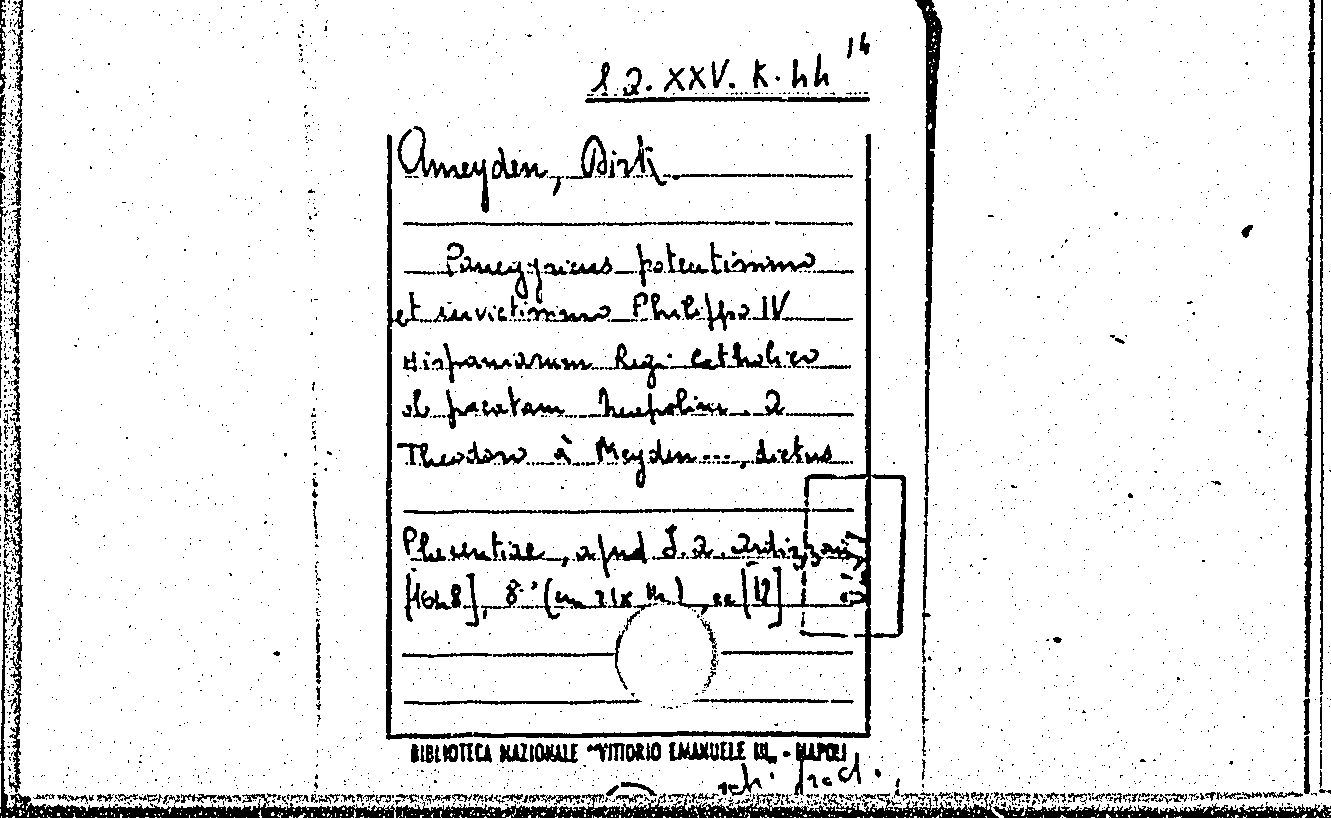 S.Q. XXV. K. hh 14
Ameyden, Dirk.
Panegyricus potentissimo
et invictissimo Philippo IV
Hispaniarum Regi Catholico
ob pacatam Neapolim. a
Theodoro à Meyden..., dictus
Placentiae, apud J. A. Ardizzoni
[1648], 8° (cm 21x ), cc [12]
BIBLIOTECA NAZIONALE "VITTORIO EMANUELE III" - NAPOLI